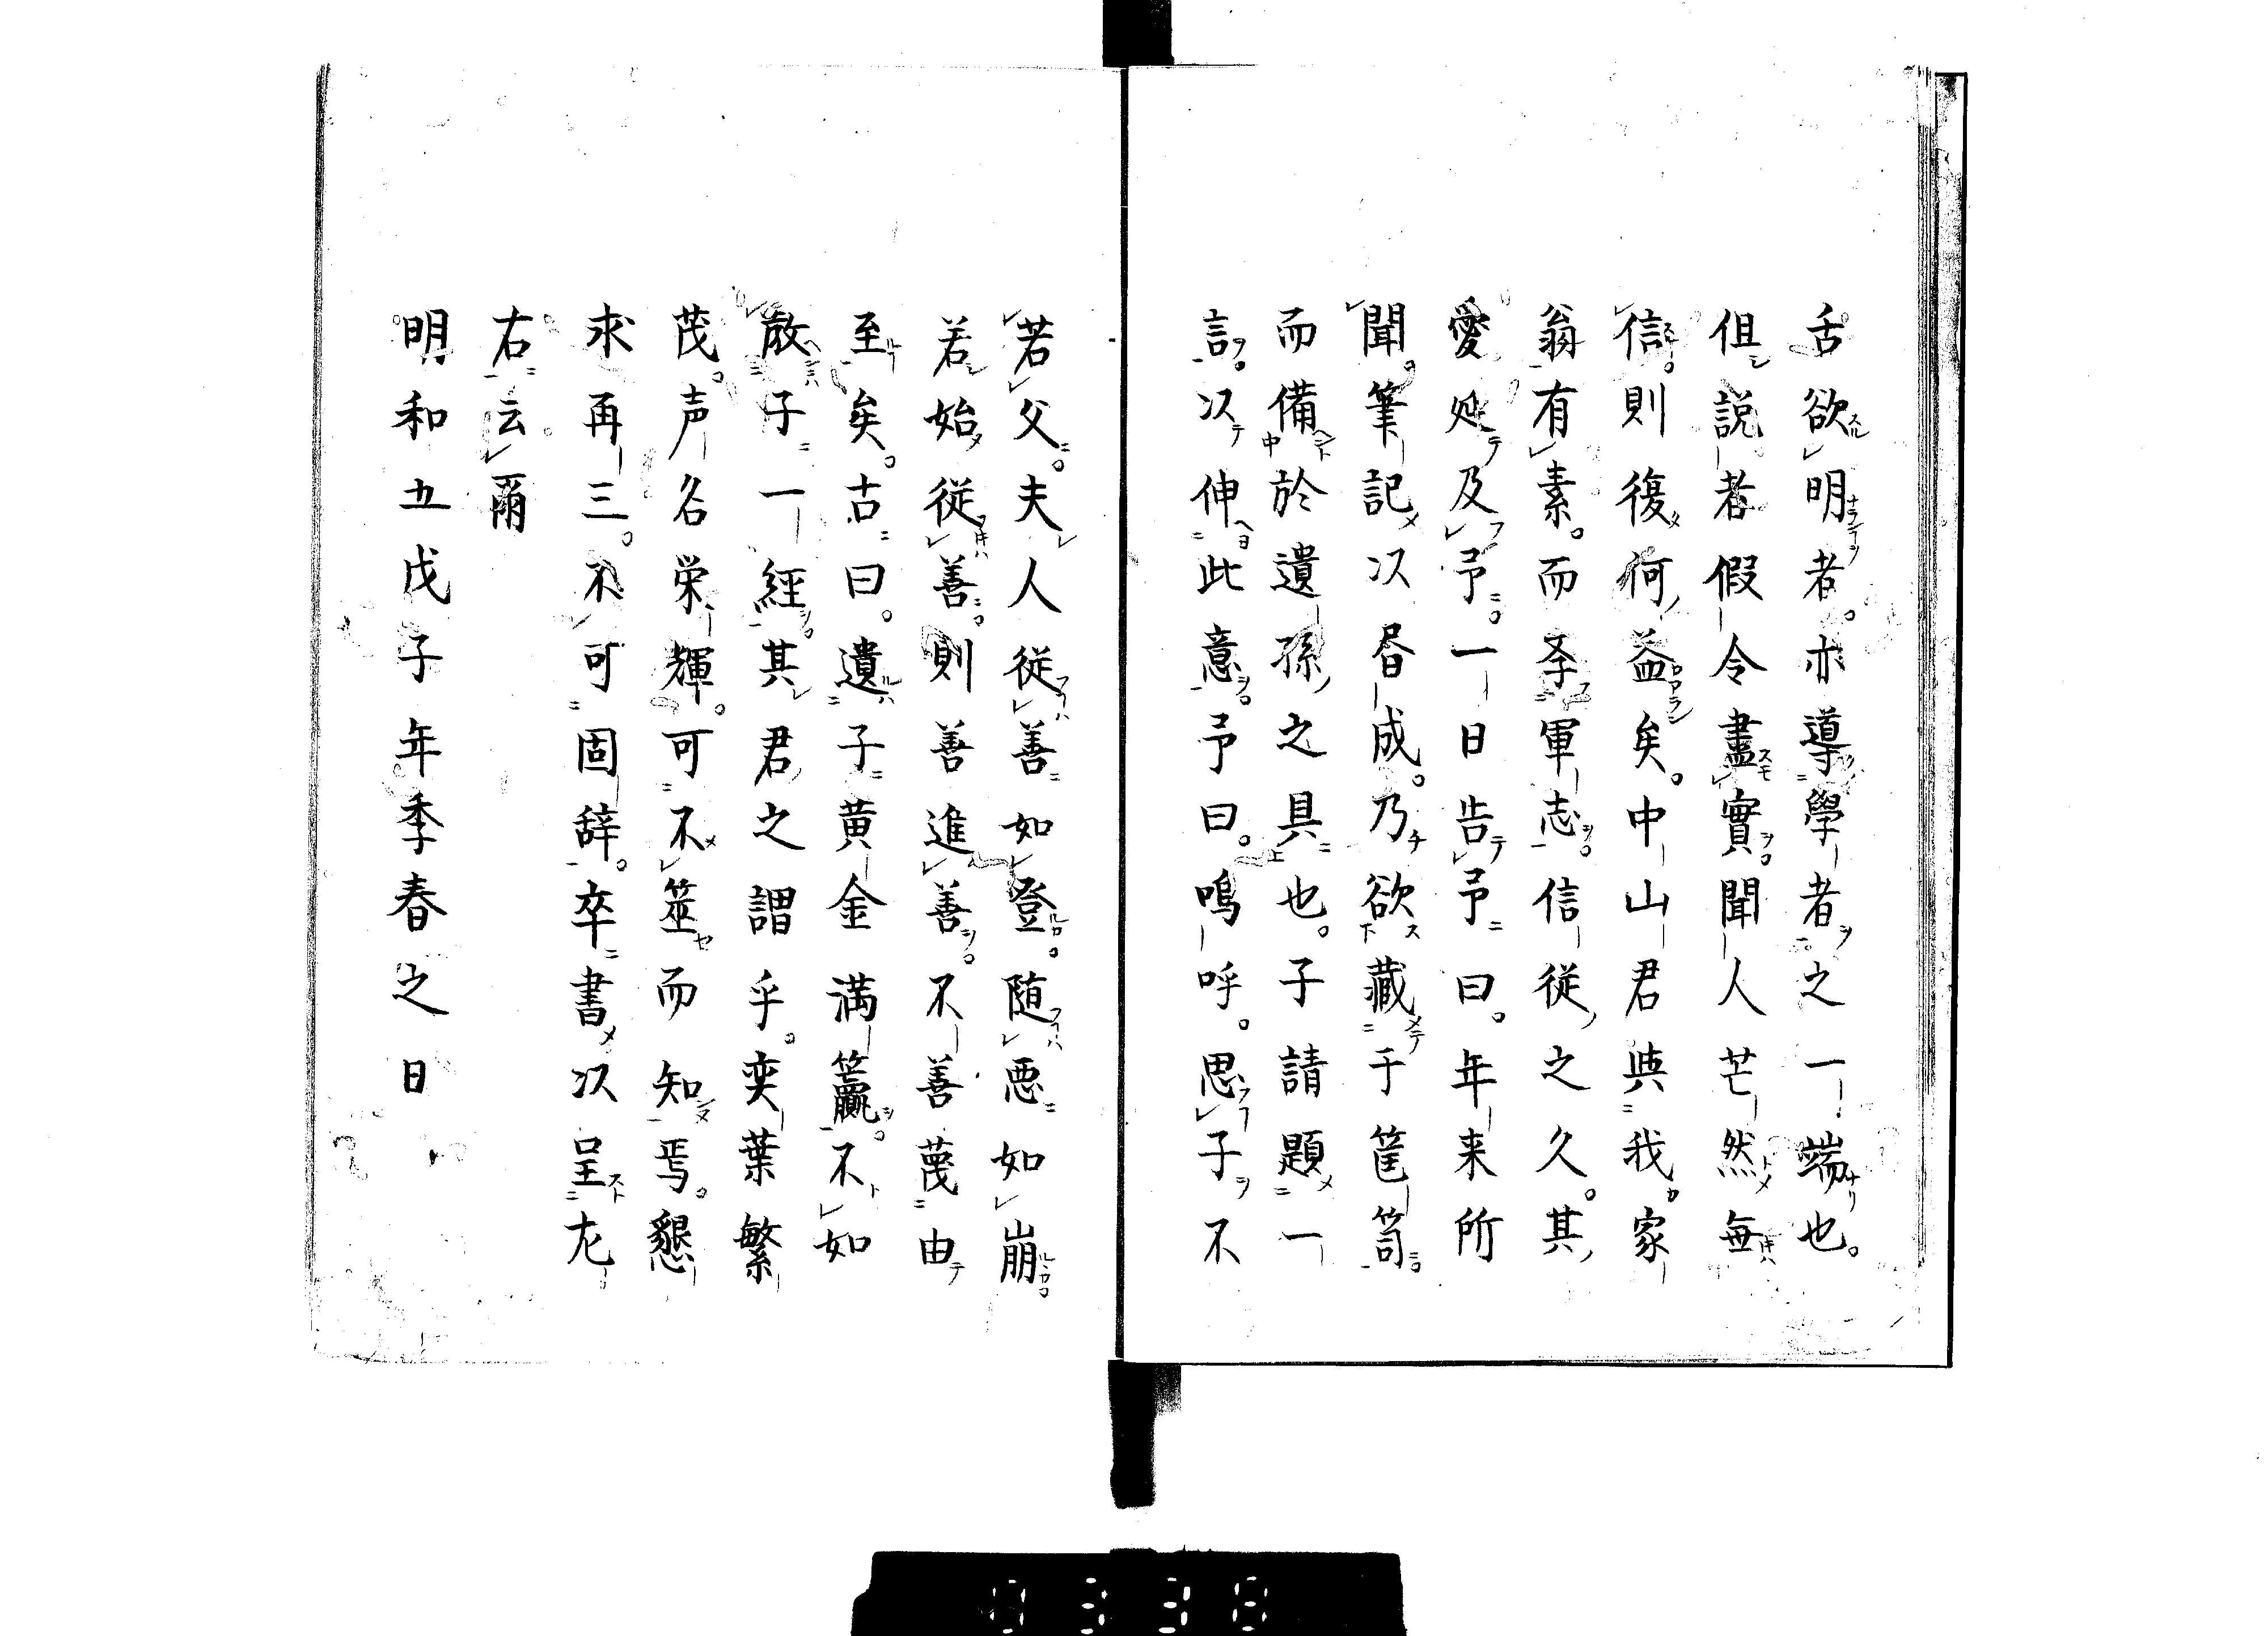 舌欲明者。亦導學者之一端也。
但説者假令盡實。聞人芒然無
信。則復何益矣。中山君與我家
翁有素。而孝軍志。信従之久。其
愛延及予。一日告予曰。年来所
聞。筆記以昏成。乃欲藏于筐笥。
而備於遺孫之具也。子請題一
言。以伸此意。予曰。鳴呼。思子不
若父。夫人従善如登。随悪如崩。
若始従善。則善進善。不善蔑由
至矣。古曰。遺子黄金満籯。不如
教子一經。其君之謂乎。奕葉繁
茂。声名栄輝。可不筮而知焉。懇
求再三。不可固辞。卒書以呈尤
右云爾
明和五戊子年季春之日